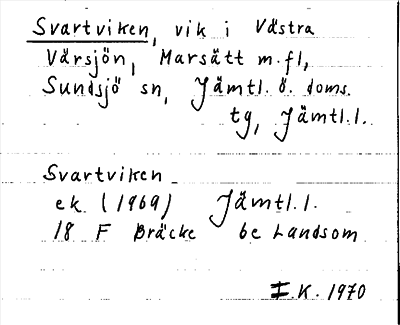 Svartviken, vik i Västra
Värsjön, Marsätt m.fl,
Sundsjö sn, Jämtl. ö. doms.
tg, Jämtl.l.
Svartviken
ek. (1969) Jämtl.l.
18 F Bräcke 6e Landsom
I.K. 1970